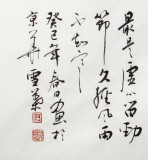 最是虚心留劲
节久经风雨
不知寒
癸巳年春日画于
京华雪